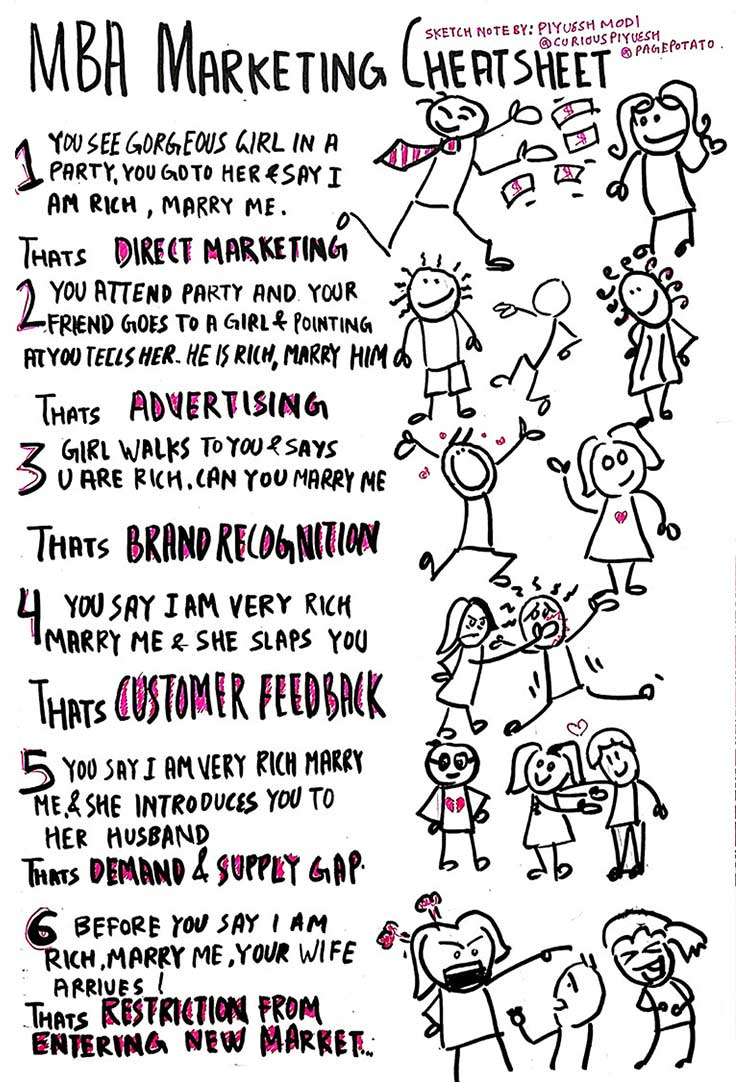 MBA MARKETING CHEATSHEET
SKETCH NOTE BY: PIYUESH MODI
@CURIOUSPIYUESH
@PAGEPOTATO.
1 YOU SEE GORGEOUS GIRL IN A
PARTY, YOU GO TO HER & SAY I
AM RICH, MARRY ME.
THATS DIRECT MARKETING
2 YOU ATTEND PARTY AND YOUR
FRIEND GOES TO A GIRL & POINTING
AT YOU TELLS HER. HE IS RICH, MARRY HIM
THATS ADVERTISING
3 GIRL WALKS TO YOU & SAYS
U ARE RICH. CAN YOU MARRY ME
THATS BRAND RECOGNITION
4 YOU SAY I AM VERY RICH
MARRY ME & SHE SLAPS YOU
THATS CUSTOMER FEEDBACK
5 YOU SAY I AM VERY RICH MARRY
ME, & SHE INTRODUCES YOU TO
HER HUSBAND
THATS DEMAND & SUPPLY GAP.
6 BEFORE YOU SAY I AM
RICH, MARRY ME, YOUR WIFE
ARRIVES!
THATS RESTRICTION FROM
ENTERING NEW MARKET...